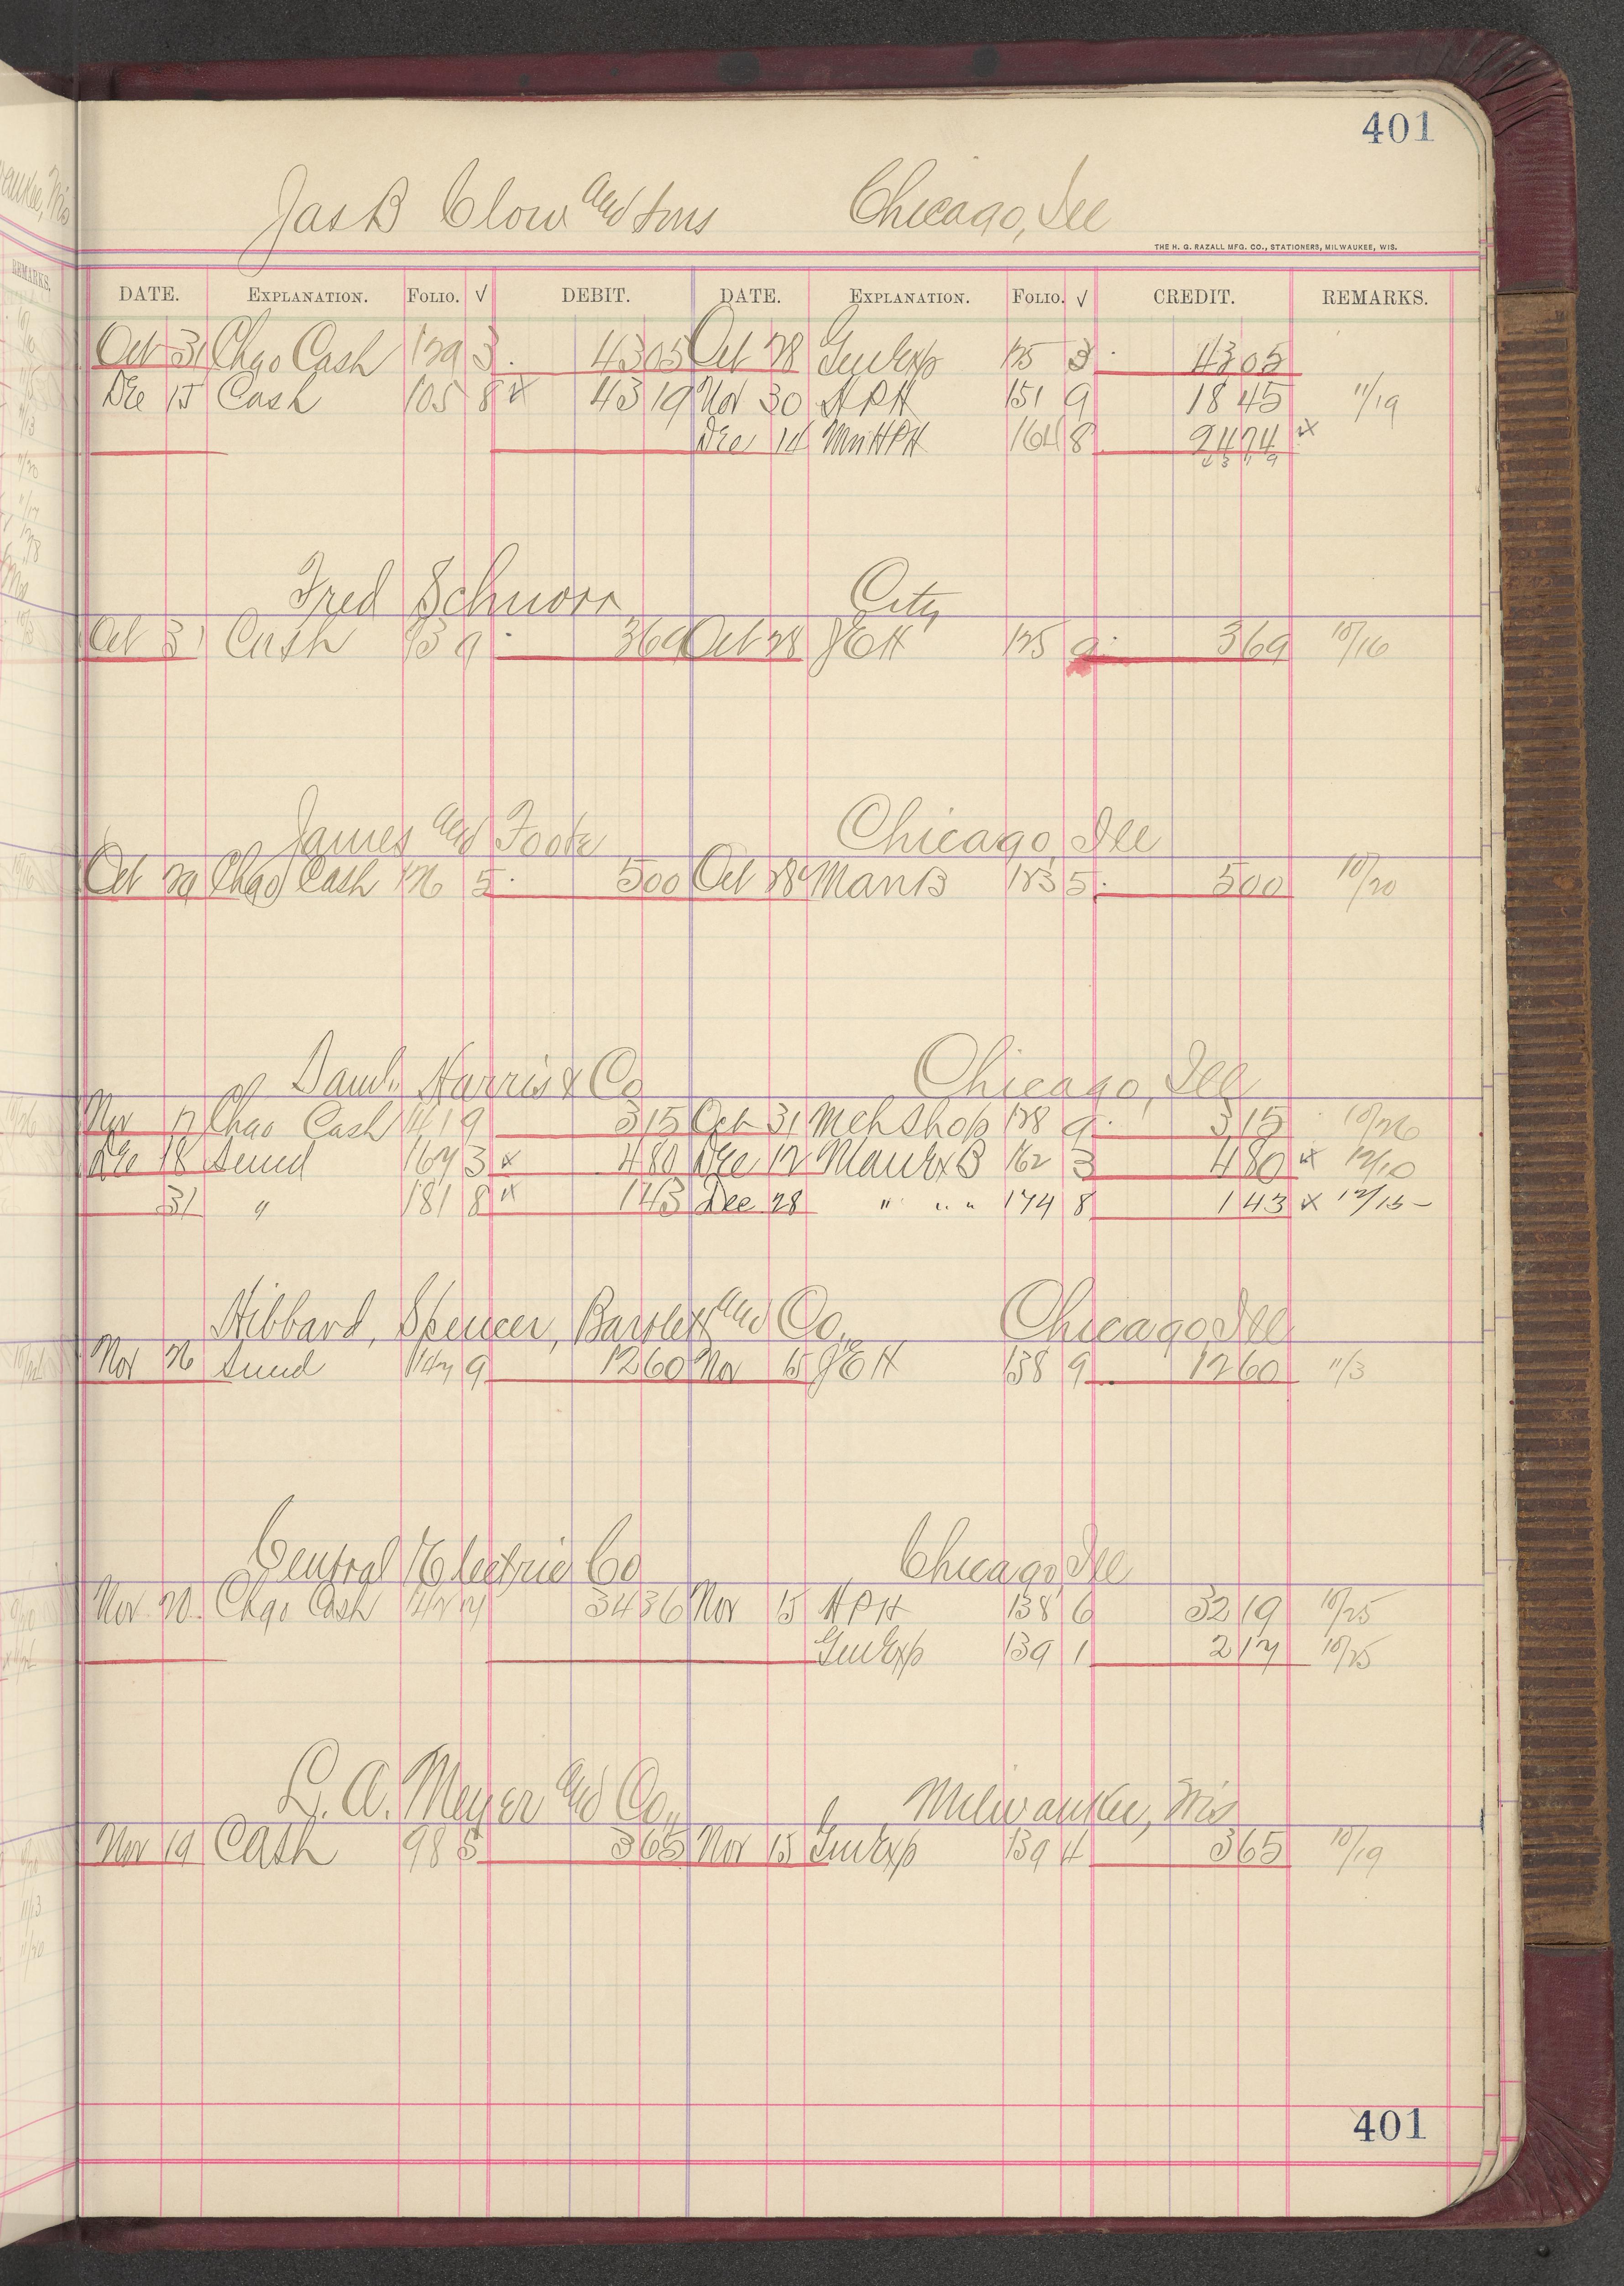 401
Jas B Clow and Sons Chicago, Ill
THE H. G. RAZALL MFG. CO., STATIONERS, MILWAUKEE, WIS.
DATE. EXPLANATION. FOLIO. √ DEBIT. DATE. EXPLANATION. FOLIO. √ CREDIT. REMARKS.
Oct 31 Chgo Cash 129 3 43 05 Oct 28 GenExp 125 3 43 05
Dec 15 Cash 105 8 x 43 19 Nov 30 HPH 151 9 18 45 11/19
Dec 14 MnHPH 164 8 24 74 x
43 19
Fred Schnorr City
Oct 31 Cash 93 9 3 69 Oct 28 JEH 125 9 3 69 10/16
James and Foote Chicago, Ill
Oct 29 Chgo Cash 126 5 5 00 Oct 28 ManB 123 5 5 00 10/20
Saml. Harris & Co Chicago, Ill
Nov 17 Chgo Cash 141 9 3 15 Oct 31 Mch Shop 128 9 3 15 10/26
Dec 18 Sund 167 3 x 4 80 Dec 12 ManExB 162 3 4 80 x 12/10
31 " 181 8 x 1 43 Dec 28 " " " 174 8 1 43 x 12/15
Hibbard, Spencer, Bartlett and Co. Chicago, Ill
Nov 26 Sund 147 9 12 60 Nov 15 JEH 138 9 12 60 11/3
Central Electric Co Chicago, Ill
Nov 20 Chgo Cash 142 7 34 36 Nov 15 HPH 138 6 32 19 10/25
GenExp 139 1 2 17 10/25
L. A. Meyer and Co., Milwaukee, Wis
Nov 19 Cash 98 5 3 65 Nov 15 GenExp 139 4 3 65 10/19
401